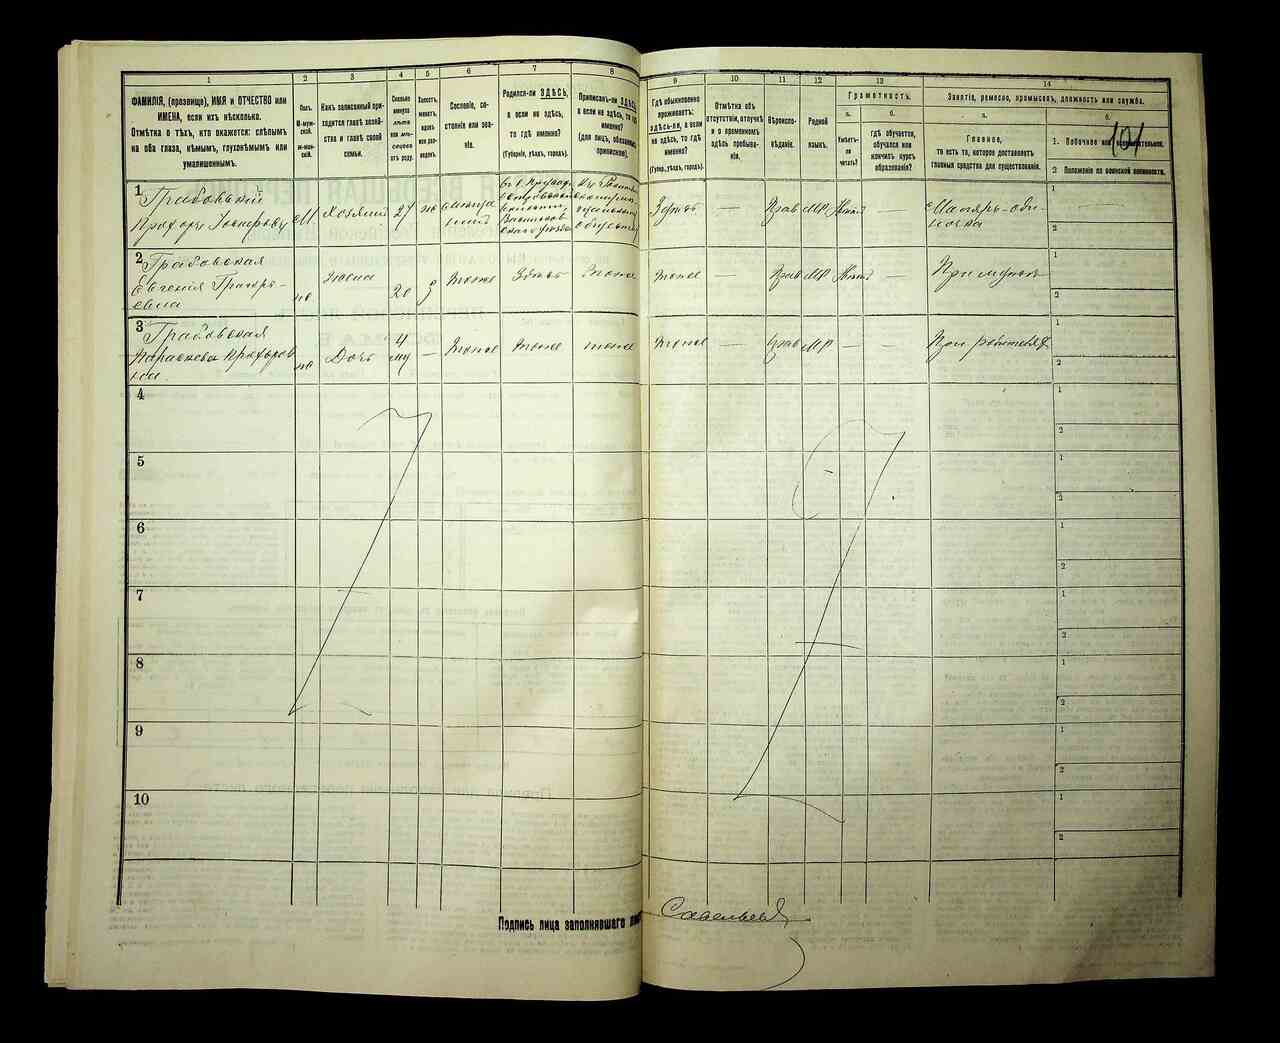 1
2
3
4
5
6
7
8
ФАМИЛІЯ, (прозвище), ИМЯ и ОТЧЕСТВО или
ИМЕНА, если ихъ нѣсколько.
Отмѣтка о тѣхъ, кто окажется: слѣпымъ
на оба глаза, нѣмымъ, глухонѣмымъ или
умалишеннымъ.
Полъ.
М-муж-
ской.
Ж-жен-
скій.
Какъ записанный при-
ходится главѣ хозяй-
ства и главѣ своей
семьи.
Сколько
минуло
лѣтъ
или мѣ-
сяцевъ
отъ роду.
Холостъ,
женатъ,
вдовъ
или раз-
веденъ.
Сословіе, со-
стояніе или зва-
ніе.
Родился-ли ЗДѢСЬ,
а если не здѣсь,
то гдѣ именно?
(Губернія, уѣздъ, городъ).
Приписанъ-ли ЗДѢСЬ,
а если не здѣсь, то гдѣ
именно?
(для лицъ, обязанныхъ
припискою).
1
Грабовскій
М
Хозяинъ
27
2
Грабовская
Евгенія Григорь-
евна
Жена
20
Тоже
Здѣсь
Тоже
3
Грабовская
Дочь
4
—
Тоже
Тоже
тоже
4
5
6
7
8
9
10
Подпись лица заполнявшаго
9
10
11
12
13
14
Гдѣ обыкновенно
проживаетъ:
здѣсь-ли, а если
не здѣсь, то гдѣ
именно?
(Губер., уѣздъ, городъ).
Отмѣтка объ
отсутствіи, отлучкѣ
и о временномъ
здѣсь пребыва-
ніи.
Вѣроиспо-
вѣданіе.
Родной
языкъ.
Грамотность.
а.
б.
Умѣетъ-
ли
читать?
гдѣ обучается,
обучался или
кончилъ курсъ
образованія?
Занятіе, ремесло, промыселъ, должность или служба.
а.
б.
Главное,
то есть то, которое доставляетъ
главныя средства для существованія.
1. Побочное или вспомогательное.
2 Положеніе по воинской повинности.
101
Здѣсь
—
Прав
МР
Нѣтъ
—
Маляръ-оди-
ночка
1
2
Тоже
—
Прав
МР
Нѣтъ
—
При мужѣ
1
2
Тоже
—
Прав
МР
—
При родителяхъ
1
2
1
2
1
2
1
2
1
2
1
2
1
2
1
2